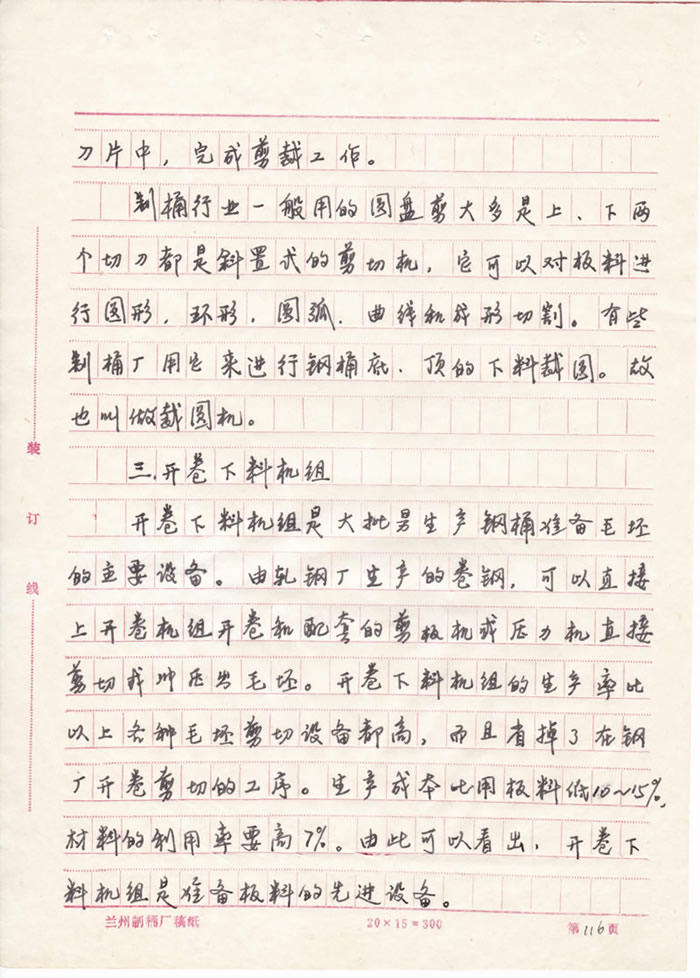 刀片中，完成剪裁工作。
制桶行业一般用的圆盘剪大多是上、下两
个切刀都是斜置式的剪切机，它可以对板料进
行圆形，环形，圆弧．曲线和成形切割。有些
制桶厂用它来进行钢桶底．顶的下料裁圆。故
也叫做裁圆机。
三．开卷下料机组
开卷下料机组是大批量生产钢桶准备毛坯
的主要设备。由轧钢厂生产的卷钢，可以直接
上开卷机组开卷和配套的剪板机或压力机直接
剪切或冲压出毛坯。开卷下料机组的生产率比
以上各种毛坯剪切设备都高，而且省掉了在钢
厂开卷剪切的工序。生产成本比用板料低10～15%，
材料的利用率要高7%。由此可以看出，开卷下
料机组是准备板料的先进设备。
装
订
线
兰州制桶厂稿纸 20×15=300 第116页